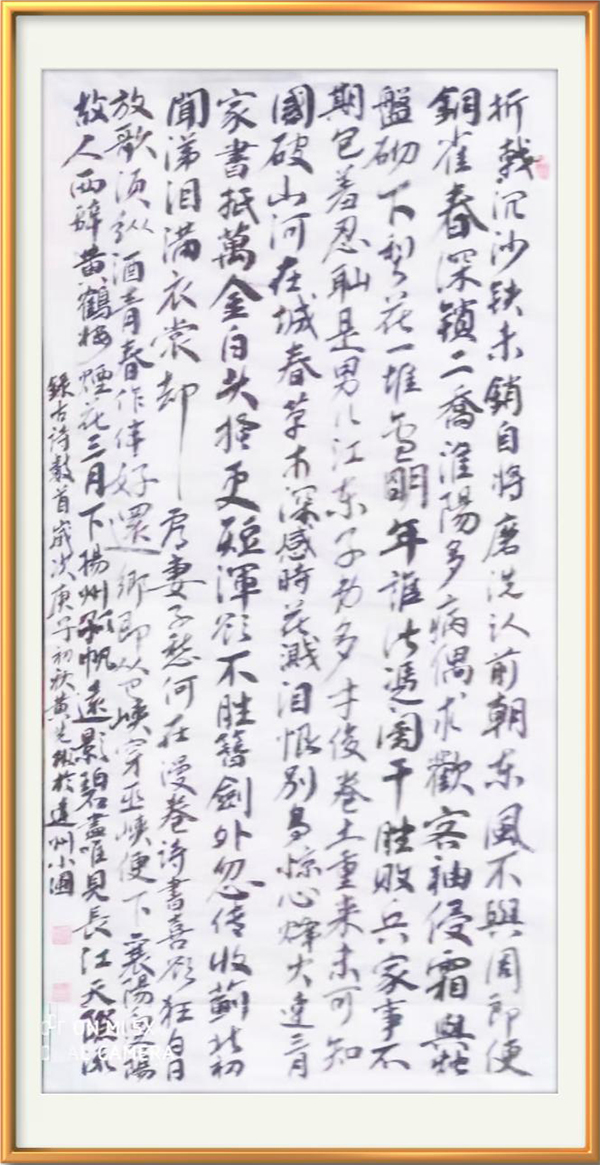 折戟沉沙鉄未銷自将磨洗认前朝东風不與周郎便
銅雀春深锁二喬淮陽多病偶求歡客袖侵霜與烛
盤砌下梨花一堆雪明年誰此馮阑干胜败兵家事不
期包羞忍耻是男儿江东子弟多才俊卷土重来未可知
國破山河在城春草木深感時花溅泪恨别鸟惊心烽火連三月
家書抵萬金白头搔更短渾欲不胜簪劍外忽传收蓟北初
聞涕泪满衣裳却看妻子愁何在漫卷诗書喜欲狂白日
放歌须纵酒青春作伴好還鄉即从巴峡穿巫峡便下襄陽向洛陽
故人西辞黄鶴楼煙花三月下揚州孤帆遠影碧盡唯見長江天際流
録古诗数首歲次庚子初秋黄先於達州小園
ON MI
CAMERA